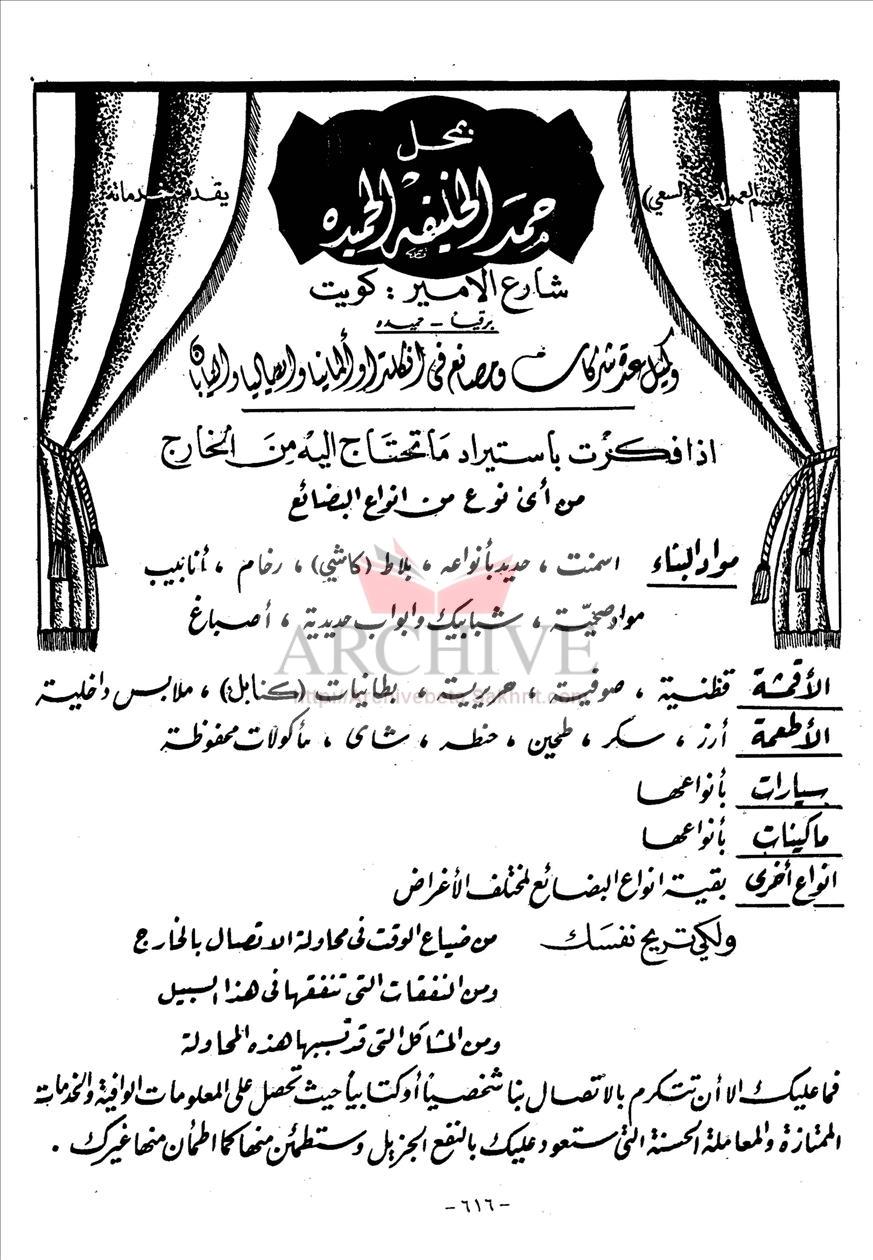 محل
حمد الخليفه الحميده
(السعي)
يقدم خدماته
شارع الامير : كويت
برقيا - حميده
وكيل عدة شركات ومصانع في انكلترا وألمانيا وايطاليا واليابان
اذا فكرت بأستيراد ما تحتاج اليه من الخارج
من أي نوع من انواع البضائع
مواد البناء اسمنت ، حديد بأنواعه ، بلاط (كاشي) ، رخام ، أنابيب
مواد صحيّة ، شبابيك وابواب حديدية ، أصباغ
ARCHIVE
الأقمشة قطنية ، صوفية ، حريرية ، بطانيات (كنابل) ، ملابس داخلية
الأطعمة أرز ، سكر ، طحين ، حنطه ، شاي ، مأكولات محفوظة
سيارات بأنواعها
ماكينات بأنواعها
انواع أخرى بقية انواع البضائع لمختلف الأغراض
ولكي تريح نفسك من ضياع الوقت في محاولة الاتصال بالخارج
ومن النفقات التي تنفقها في هذا السبيل
ومن المشاكل التي قد تسببها هذه المحاولة
فما عليك الا أن تتكرم بالاتصال بنا شخصياً أو كتابياً حيث تحصل على المعلومات الوافية والخدمات
الممتازة والمعاملة الحسنة التي ستعود عليك بالنفع الجزيل وستطمئن منها كما اطمأن منها غيرك .
-٦١٦-